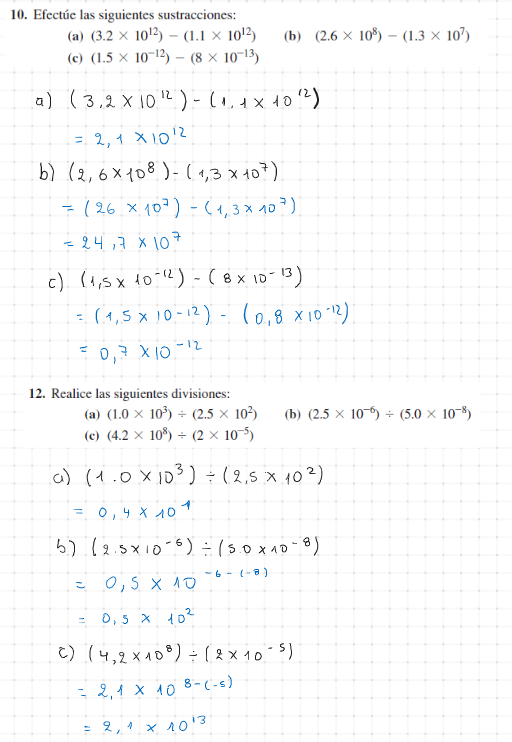 10. Efectúe las siguientes sustracciones:
(a) (3.2 × 10¹²) − (1.1 × 10¹²) (b) (2.6 × 10⁸) − (1.3 × 10⁷)
(c) (1.5 × 10⁻¹²) − (8 × 10⁻¹³)
a) (3,2 × 10¹²) - (1,1 × 10¹²)
= 2,1 × 10¹²
b) (2,6 × 10⁸) - (1,3 × 10⁷)
= (26 × 10⁷) - (1,3 × 10⁷)
= 24,7 × 10⁷
c) (1,5 × 10⁻¹²) - (8 × 10⁻¹³)
= (1,5 × 10⁻¹²) - (0,8 × 10⁻¹²)
= 0,7 × 10⁻¹²
12. Realice las siguientes divisiones:
(a) (1.0 × 10³) ÷ (2.5 × 10²) (b) (2.5 × 10⁻⁶) ÷ (5.0 × 10⁻⁸)
(c) (4.2 × 10⁸) ÷ (2 × 10⁻⁵)
a) (1.0 × 10³) ÷ (2,5 × 10²)
= 0,4 × 10¹
b) (2.5 × 10⁻⁶) ÷ (5.0 × 10⁻⁸)
= 0,5 × 10⁻⁶⁻⁽⁻⁸⁾
= 0,5 × 10²
c) (4,2 × 10⁸) ÷ (2 × 10⁻⁵)
= 2,1 × 10⁸⁻⁽⁻⁵⁾
= 2,1 × 10¹³